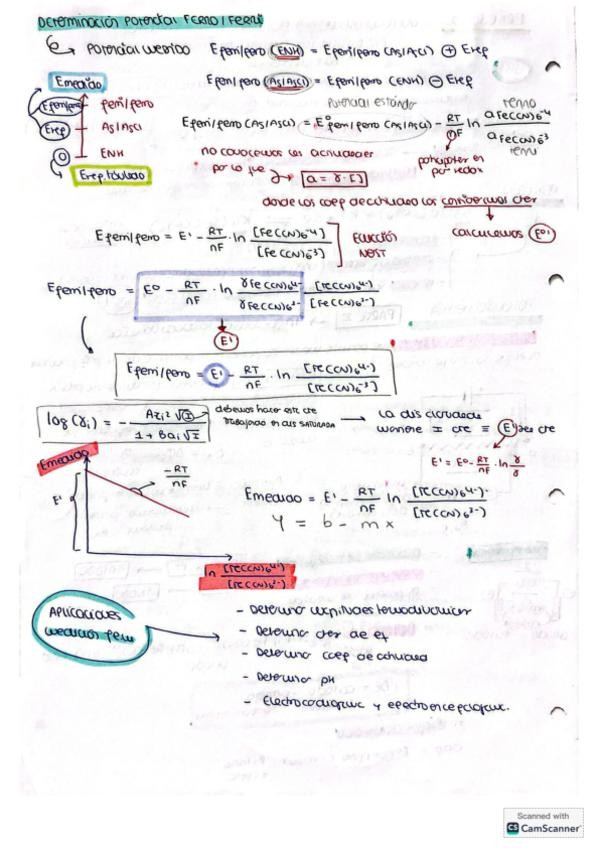 Determinación Potencial FERRO/FERRI
Potencial medido Eferri/ferro (ENH) = Eferri/ferro (Ag/AgCl) ⊕ Eref
Emedido Eferri/ferro (Ag/AgCl) = Eferri/ferro (ENH) ⊖ Eref
Eferri/ferro ferri/ferro
Eref Ag/AgCl
0 ENH
Eref. tabulado
Potencial estándar
Eferri/ferro (Ag/AgCl) = E⁰ferri/ferro (Ag/AgCl) - RT/nF ln aFe(CN)6⁻⁴ / aFe(CN)6⁻³
ferro
ferri
no conocemos las actividades
por lo que a = γ·[ ]
donde los coef de actividad los
calculamos E⁰'
Eferri/ferro = E' - RT/nF · ln [Fe(CN)6⁻⁴] / [Fe(CN)6⁻³] Ecuación
Nerst
Eferri/ferro = E⁰ - RT/nF · ln γFe(CN)6⁴⁻ / γFe(CN)6³⁻ · [Fe(CN)6⁴⁻] / [Fe(CN)6³⁻]
E'
Eferri/ferro = E' - RT/nF · ln [Fe(CN)6⁴⁻] / [Fe(CN)6⁻³]
log(γi) = - Azi²√I / 1 + Bai√I debemos hacer este cte
trabajando en dis SATURADA
mantiene I cte ≡ E' es cte
E' = E⁰ - RT/nF · ln γ/γ
Emedido
-RT/nF
E'
Emedido = E' - RT/nF ln [Fe(CN)6⁴⁻] / [Fe(CN)6³⁻]
y = b - mx
ln [Fe(CN)6⁴⁻] / [Fe(CN)6³⁻]
Aplicaciones
medición fem
- Determinar magnitudes termodinámicas
- Determinar cter de eq
- Determinar coef de actividad
- Determinar pH
- Electrocardiograma y electroencefalograma.
Scanned with
CS CamScanner